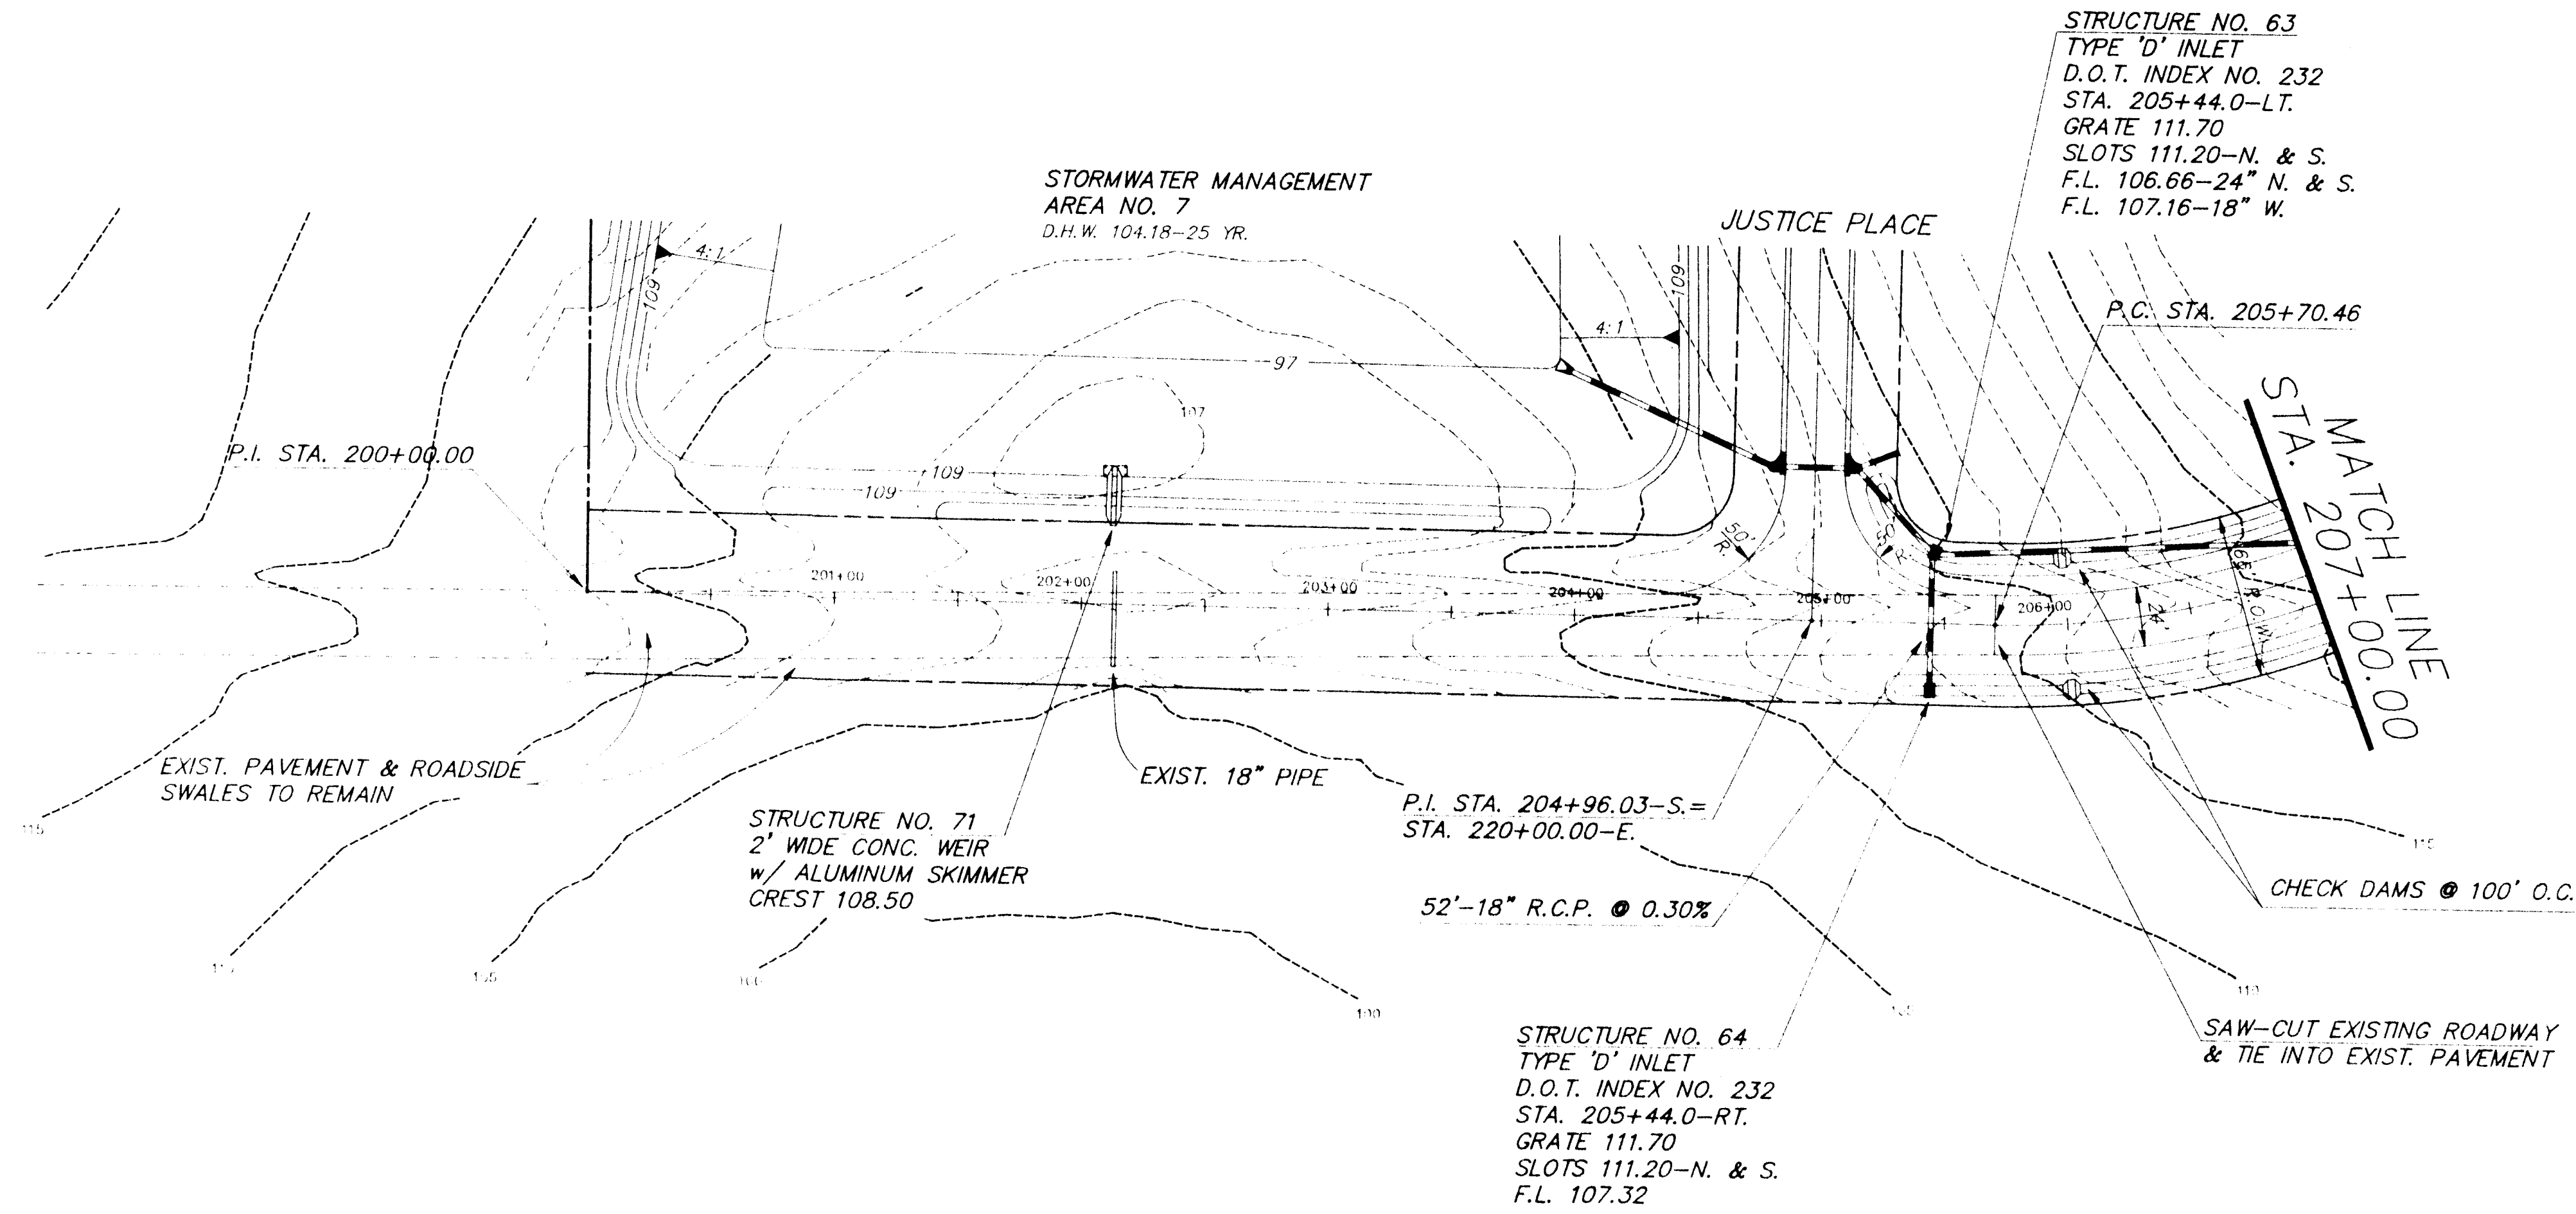 STRUCTURE NO. 63
TYPE 'D' INLET
D.O.T. INDEX NO. 232
STA. 205+44.0-LT.
GRATE 111.70
SLOTS 111.20-N. & S.
F.L. 106.66-24" N. & S.
F.L. 107.16-18" W.
STORMWATER MANAGEMENT
AREA NO. 7
D.H.W. 104.18-25 YR.
JUSTICE PLACE
4:1
109
109
4:1
P.C. STA. 205+70.46
97
107
MATCH LINE
STA. 207+00.00
P.I. STA. 200+00.00
109
109
50' R
50' R
66' R.O.W.
201+00
202+00
203+00
204+00
205+00
206+00
24'
EXIST. PAVEMENT & ROADSIDE
SWALES TO REMAIN
EXIST. 18" PIPE
STRUCTURE NO. 71
2' WIDE CONC. WEIR
w/ ALUMINUM SKIMMER
CREST 108.50
P.I. STA. 204+96.03-S.=
STA. 220+00.00-E.
52'-18" R.C.P. @ 0.30%
CHECK DAMS @ 100' O.C.
115
115
105
100
100
110
SAW-CUT EXISTING ROADWAY
& TIE INTO EXIST. PAVEMENT
STRUCTURE NO. 64
TYPE 'D' INLET
D.O.T. INDEX NO. 232
STA. 205+44.0-RT.
GRATE 111.70
SLOTS 111.20-N. & S.
F.L. 107.32